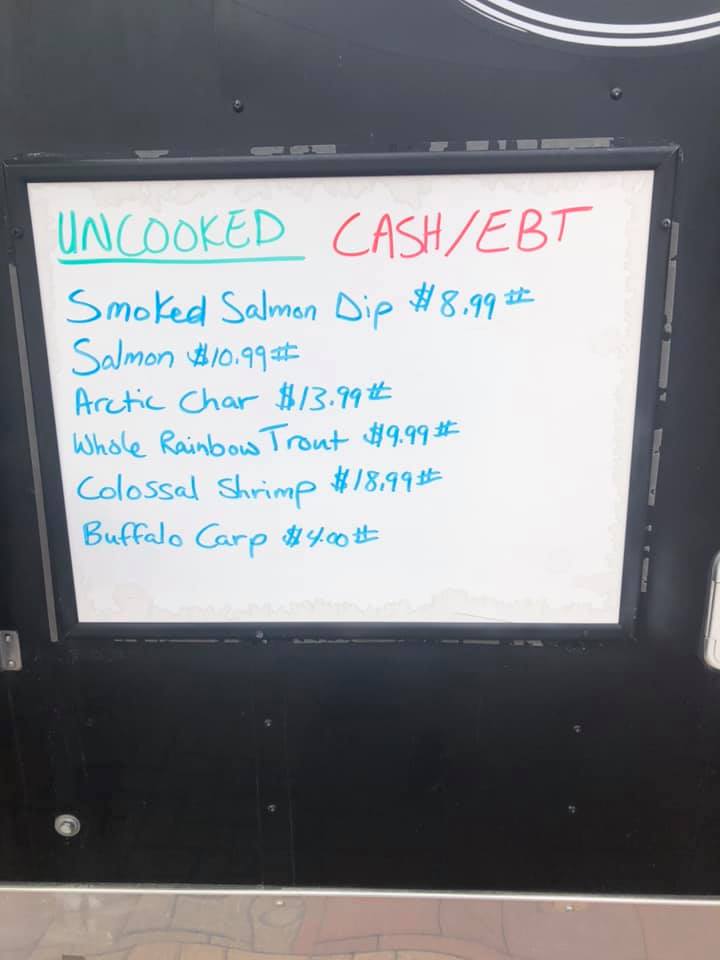 UNCOOKED CASH/EBT
Smoked Salmon Dip $8.99#
Salmon $10.99#
Arctic Char $13.99#
Whole Rainbow Trout $9.99#
Colossal Shrimp $18.99#
Buffalo Carp $4.00#